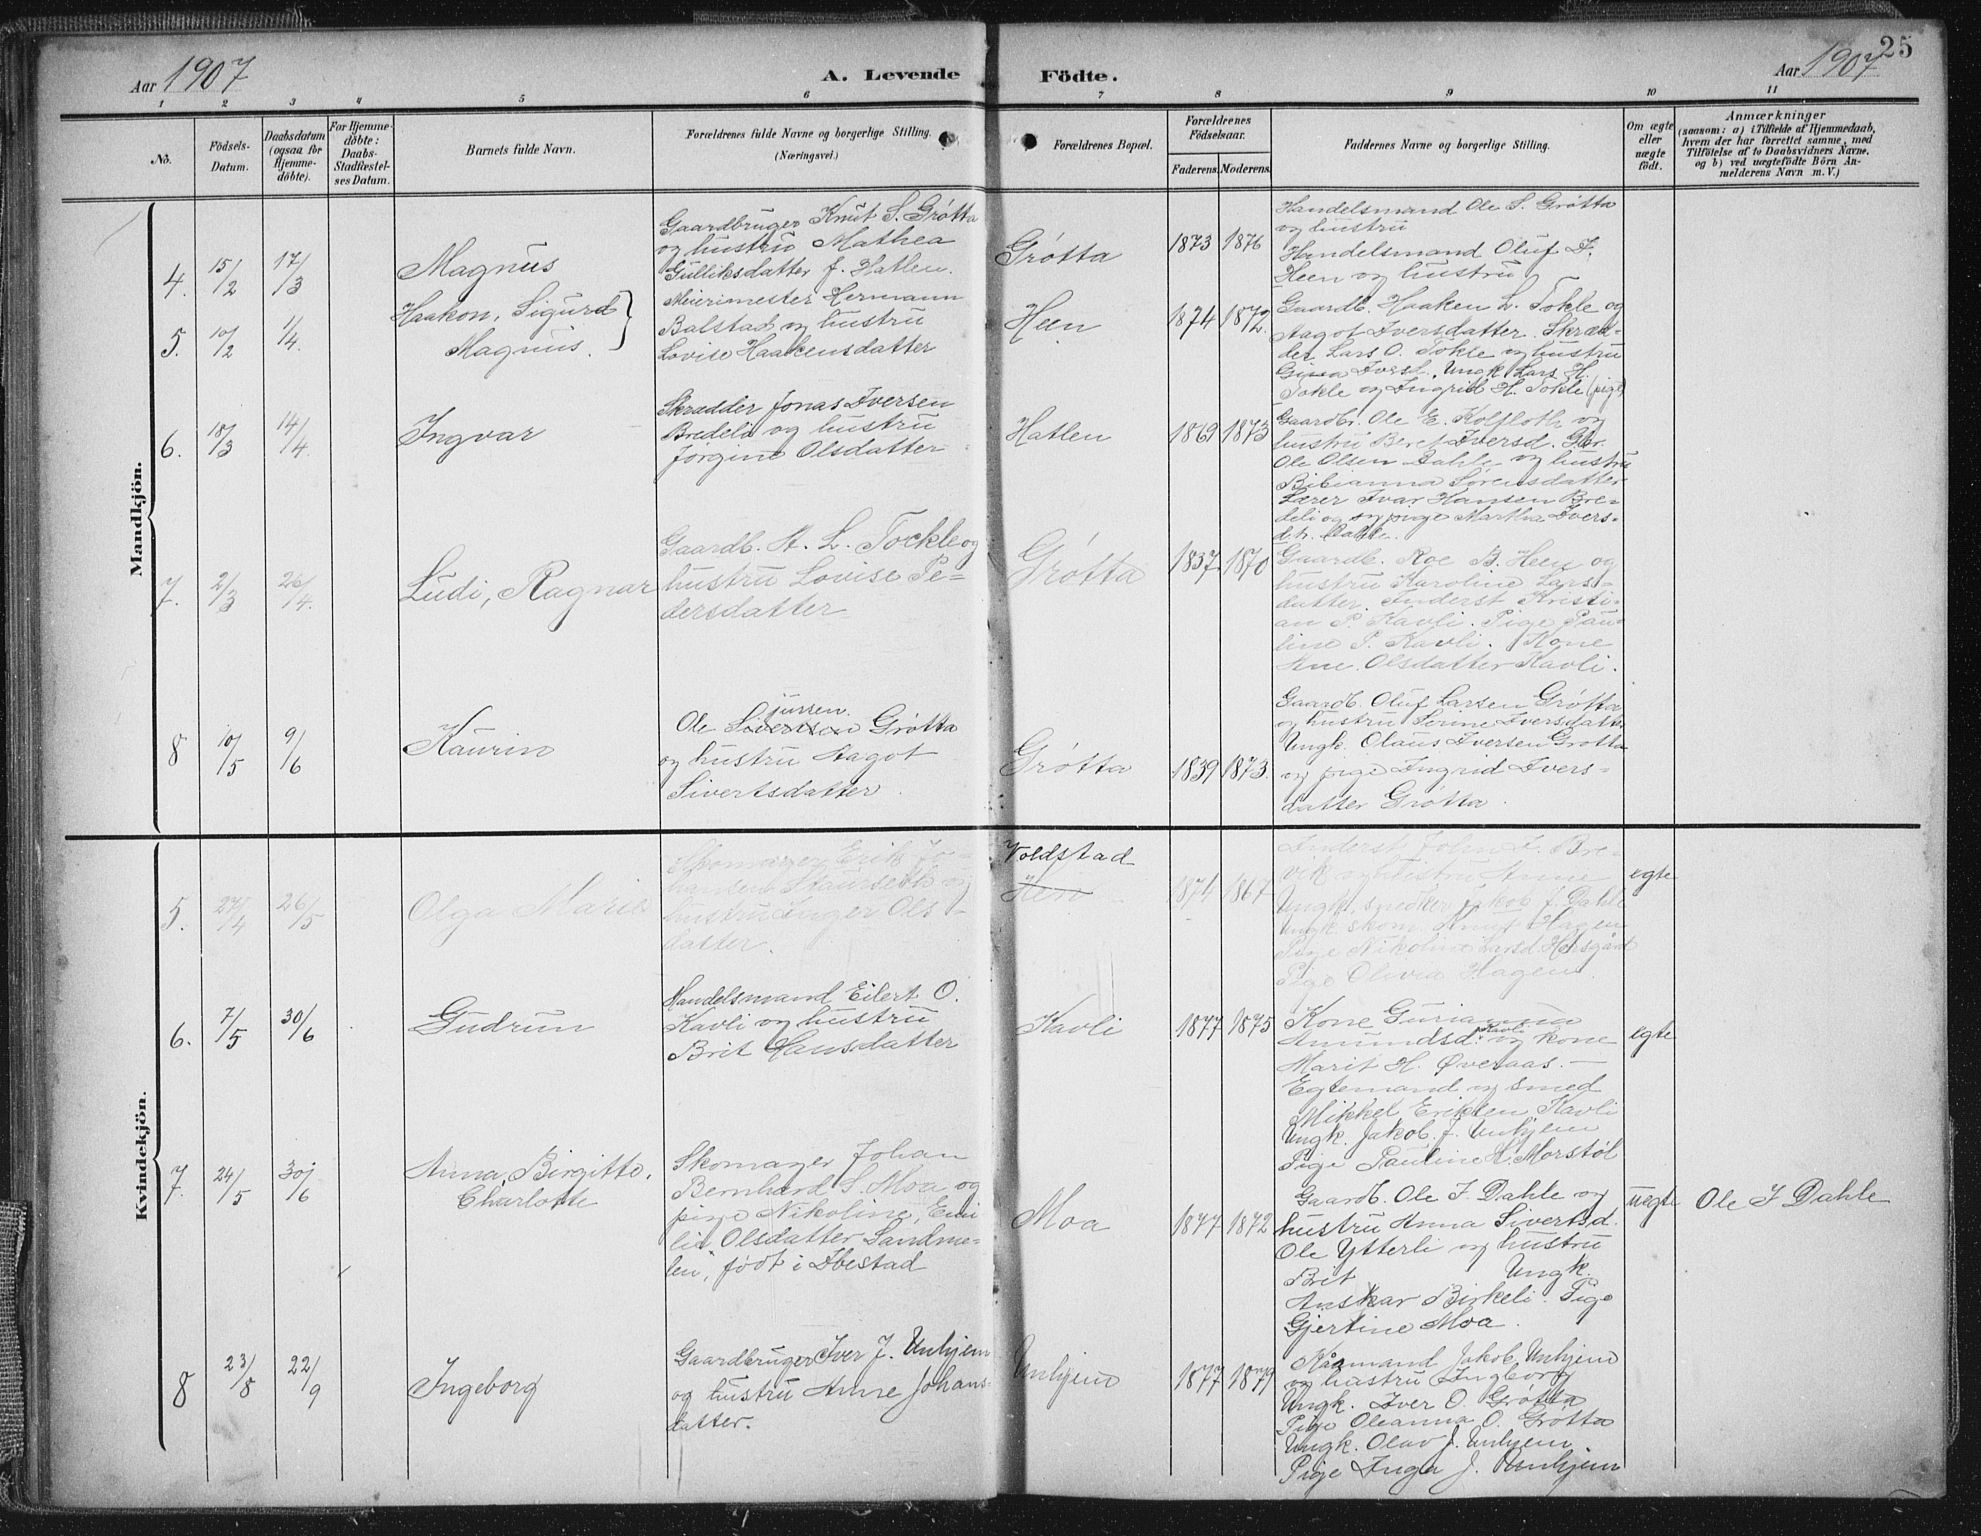 25
Aar 1907
A. Levende
Födte.
Aar 1907
1 2 3 4 5 6 7 8 9 10 11
No.
Födsels-
Datum.
Daabsdatum
(ogsaa for
Hjemme-
döbte).
For Hjemme-
döbte:
Daabs-
Stadfæstel-
ses Datum.
Barnets fulde Navn.
Forældrenes fulde Navne og borgerlige Stilling.
(Næringsvei.)
Forældrenes Bopæl.
Forældrenes
Födselsaar.
Faderens. Moderens.
Faddernes Navne og borgerlige Stilling.
Om ægte
eller
uægte
födt.
Anmærkninger
(saasom: a) i Tilfælde af Hjemmedaab,
hvem der har forrettet samme, med
Tilföielse af to Daabsvidners Navne.
og b) ved uægtefödte Börn An-
melderens Navn m. V.)
Mandkjön.
4.
15/2
17/3
Magnus
Gaardbruger Knut S. Grøtta
og hustru Mathea
Gulliksdatter f. Hatlen.
Grøtta
1873 1876
Handelsmand Ole S. Grøtta
og hustru
Handelsmand Oluf I.
Heen og hustru
5.
10/2
1/4.
Haakon, Sigurd
Magnus.
Meierimester Hermann
Balstad og hustru
Lovise Haakensdatter
Heen
1874 1872.
Gaardb. Haaken L. Tokle og
Aagot Iversdatter. Skræd-
der Lars O. Tokle og hustru
Iversd. Ungk. Lars H.
Tokle og Ingrid H. Tokle (pige)
6.
18/3
14/4.
Ingvar
Skrædder Jonas Iversen
Bredeli og hustru
Jorgine Olsdatter
Hatlen
1869 1873
Gaardbr. Ole E. Kolfloth og
hustru Beret Iversd. Gbr.
Ole Olsen Dahle og hustru
Bibianna Sørensdatter
Lærer Ivar Hansen Bre-
deli og sypige Martha Ivers-
dtr. Dahle.
7.
2/3
26/4.
Ludi, Ragnar
Gaardb. H. L. Tockle og
hustru Lovise Pe-
dersdatter
Grøtta
1837 1870
Gaardb. Roe B. Heen og
hustru Karoline Lars-
datter. Inderst Kristi-
an P. Kavli. Pige Pau-
line P. Kavli. Kone
Ane Olsdatter Kavli.
8
10/5
9/6
Kaurin
jursen.
Ole Sivertsen Grøtta
og hustru Aagot
Sivertsdatter.
Grøtta
1839 1873.
Gaardb. Oluf Larsen Grøtta
og hustru Serine Iversdatter
Ungk. Olaus Iversen Grøtta
og pige Ingrid Ivers-
datter Grøtta.
Kvindekjön.
5.
27/4
26/5
Olga Marie
Skomager Erik Jo-
hansen Staurseth og
hustru Inger Ols-
datter.
Voldstad
Hen
1874 1867
Inderst John J. Bre-
vik og hustru Anne
Ungk. snedker Jakob J. Dahle
Ungk. skom. Knut Hagen
Pige Nikoline Larsd.
Pige Olivia Hagen.
egte
6.
7/5
30/6
Gudrun
Handelsmand Eilert O.
Kavli og hustru
Brit Hansdatter
Kavli
1877 1875
Kone Gurianna
Kavli
Amundsd. og kone
Marit H. Øveraas. —
Egtemand og smed
Mikkel Eriksen Kavli
Ungk. Jakob J. Unhjem
Pige Pauline H. Morstøl
egte
7.
24/5
30/6
Anna, Birgitte,
Charlotte
Skomager Johan
Bernhard S. Moa og
pige Nikoline, Emi
lie, Olsdatter Sandme-
len, født i Ibestad
Moa
1877 1872
Gaardb. Ole J. Dahle og
hustru Anna Sivertsd.
Ole Ytterli og hustru
Brit Ungk.
Anskar Birkeli. Pige
Gjertine Moa.
uegte
Ole J Dahle
8
23/8
22/9
Ingeborg
Gaardbruger Iver J. Unhjem
og hustru Anne Johans-
datter.
Unhjem
1877 1879
Kårmand Jakob Unhjem
og hustru Ingeborg
Ungk. Iver O. Grøtta
Pige Oleanna O. Grøtta
Ungk. Olav J. Unhjem.
Pige Inga J. Unhjem